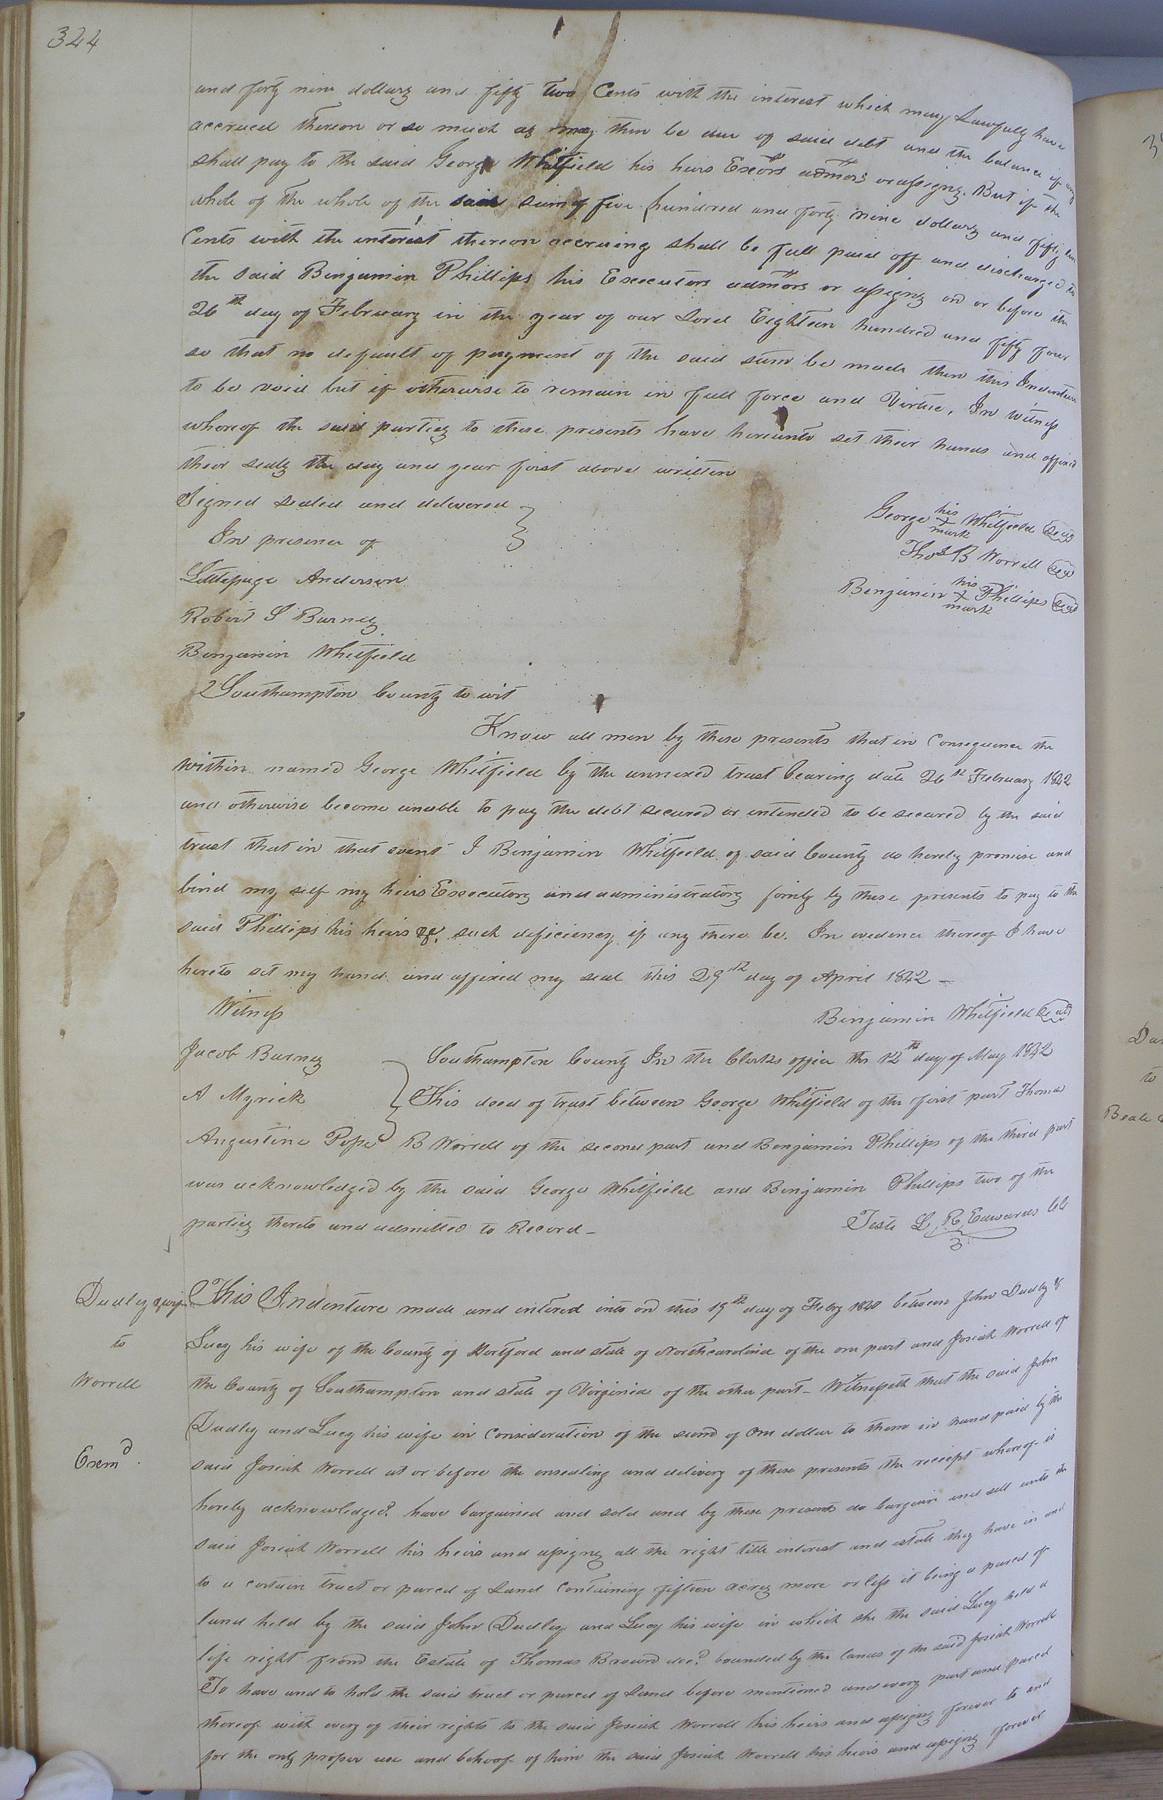 324
and forty nine dollars and fifty two Cents with the interest which may Lawfully have
accrued thereon or so much as may then be due of said debt and the balance if any
shall pay to the said George Whitfield his heirs Exors admors or assigns. But if the
whole of the whole of the said sum of five hundred and forty nine dollars and fifty two
Cents with the interest thereon accruing shall be full paid off and discharged to
the said Benjamin Phillips his Executors admors or assigns on or before the
26th day of February in the year of our Lord Eighteen hundred and fifty four
so that no default of payment of the said sum be made then this Indenture
to be void but if otherwise to remain in full force and Virtue, In witness
whereof the said parties to these presents have hereunto set their hands and affixed
their seals the day and year first above written
Signed sealed and delivered
In presence of
George his X mark Whitfield Seal
Thos B Worrell Seal
Benjamin his X mark Phillips Seal
Littlepage Anderson
Robert S Barnes
Benjamin Whitfield
Southampton County to wit
Know all men by these presents that in Consequence the
within named George Whitfield by the annexed trust bearing date 26th February 1842
and otherwise become unable to pay the debt secured or intended to be secured by the said
trust that in that event I Benjamin Whitfield of said County do hereby promise and
bind my self my heirs Executors and administrators firmly by these presents to pay to the
said Phillips his heirs &c. such deficiency if any there be. In evidence thereof I have
hereto set my hand and affixed my seal this 29th day of April 1842 –
Witness
Benjamin Whitfield Seal
Jacob Barnes
A Myrick
Augustine Pope
Southampton County In the Clerks office the 12th day of May 1842
This deed of trust between George Whitfield of the first part Thomas
B Worrell of the second part and Benjamin Phillips of the third part
was acknowledged by the said George Whitfield and Benjamin Phillips two of the
parties thereto and admitted to Record –
Teste L R Edwards CC
Dudley & wife
to
Worrell
Exemd
This Indenture made and entered into on this 15th day of Feby between John Dudley &
Lucy his wife of the County of Hertford and state of Northcarolina of the one part and Josiah Worrell of
the County of Southampton and state of Virginia of the other part – Witnesseth that the said John
Dudley and Lucy his wife in Consideration of the sum of one dollar to them in hand paid by the
said Josiah Worrell at or before the ensealing and delivery of these presents the receipt whereof is
hereby acknowledged have bargained and sold and by these presents do bargain and sell unto the
said Josiah Worrell his heirs and assigns all the right title interest and estate they have in and
to a certain tract or parcel of Land Containing fifteen acres more or less it being a parcel of
land held by the said John Dudley and Lucy his wife in which she the said Lucy held a
life right from the Estate of Thomas Brown decd bounded by the lands of the said Josiah Worrell
To have and to hold the said tract or parcel of Land before mentioned and every part and parcel
thereof with every of their rights to the said Josiah Worrell his heirs and assigns forever to and
for the only proper use and behoof of him the said Josiah Worrell his heirs and assigns forever
Beale
to